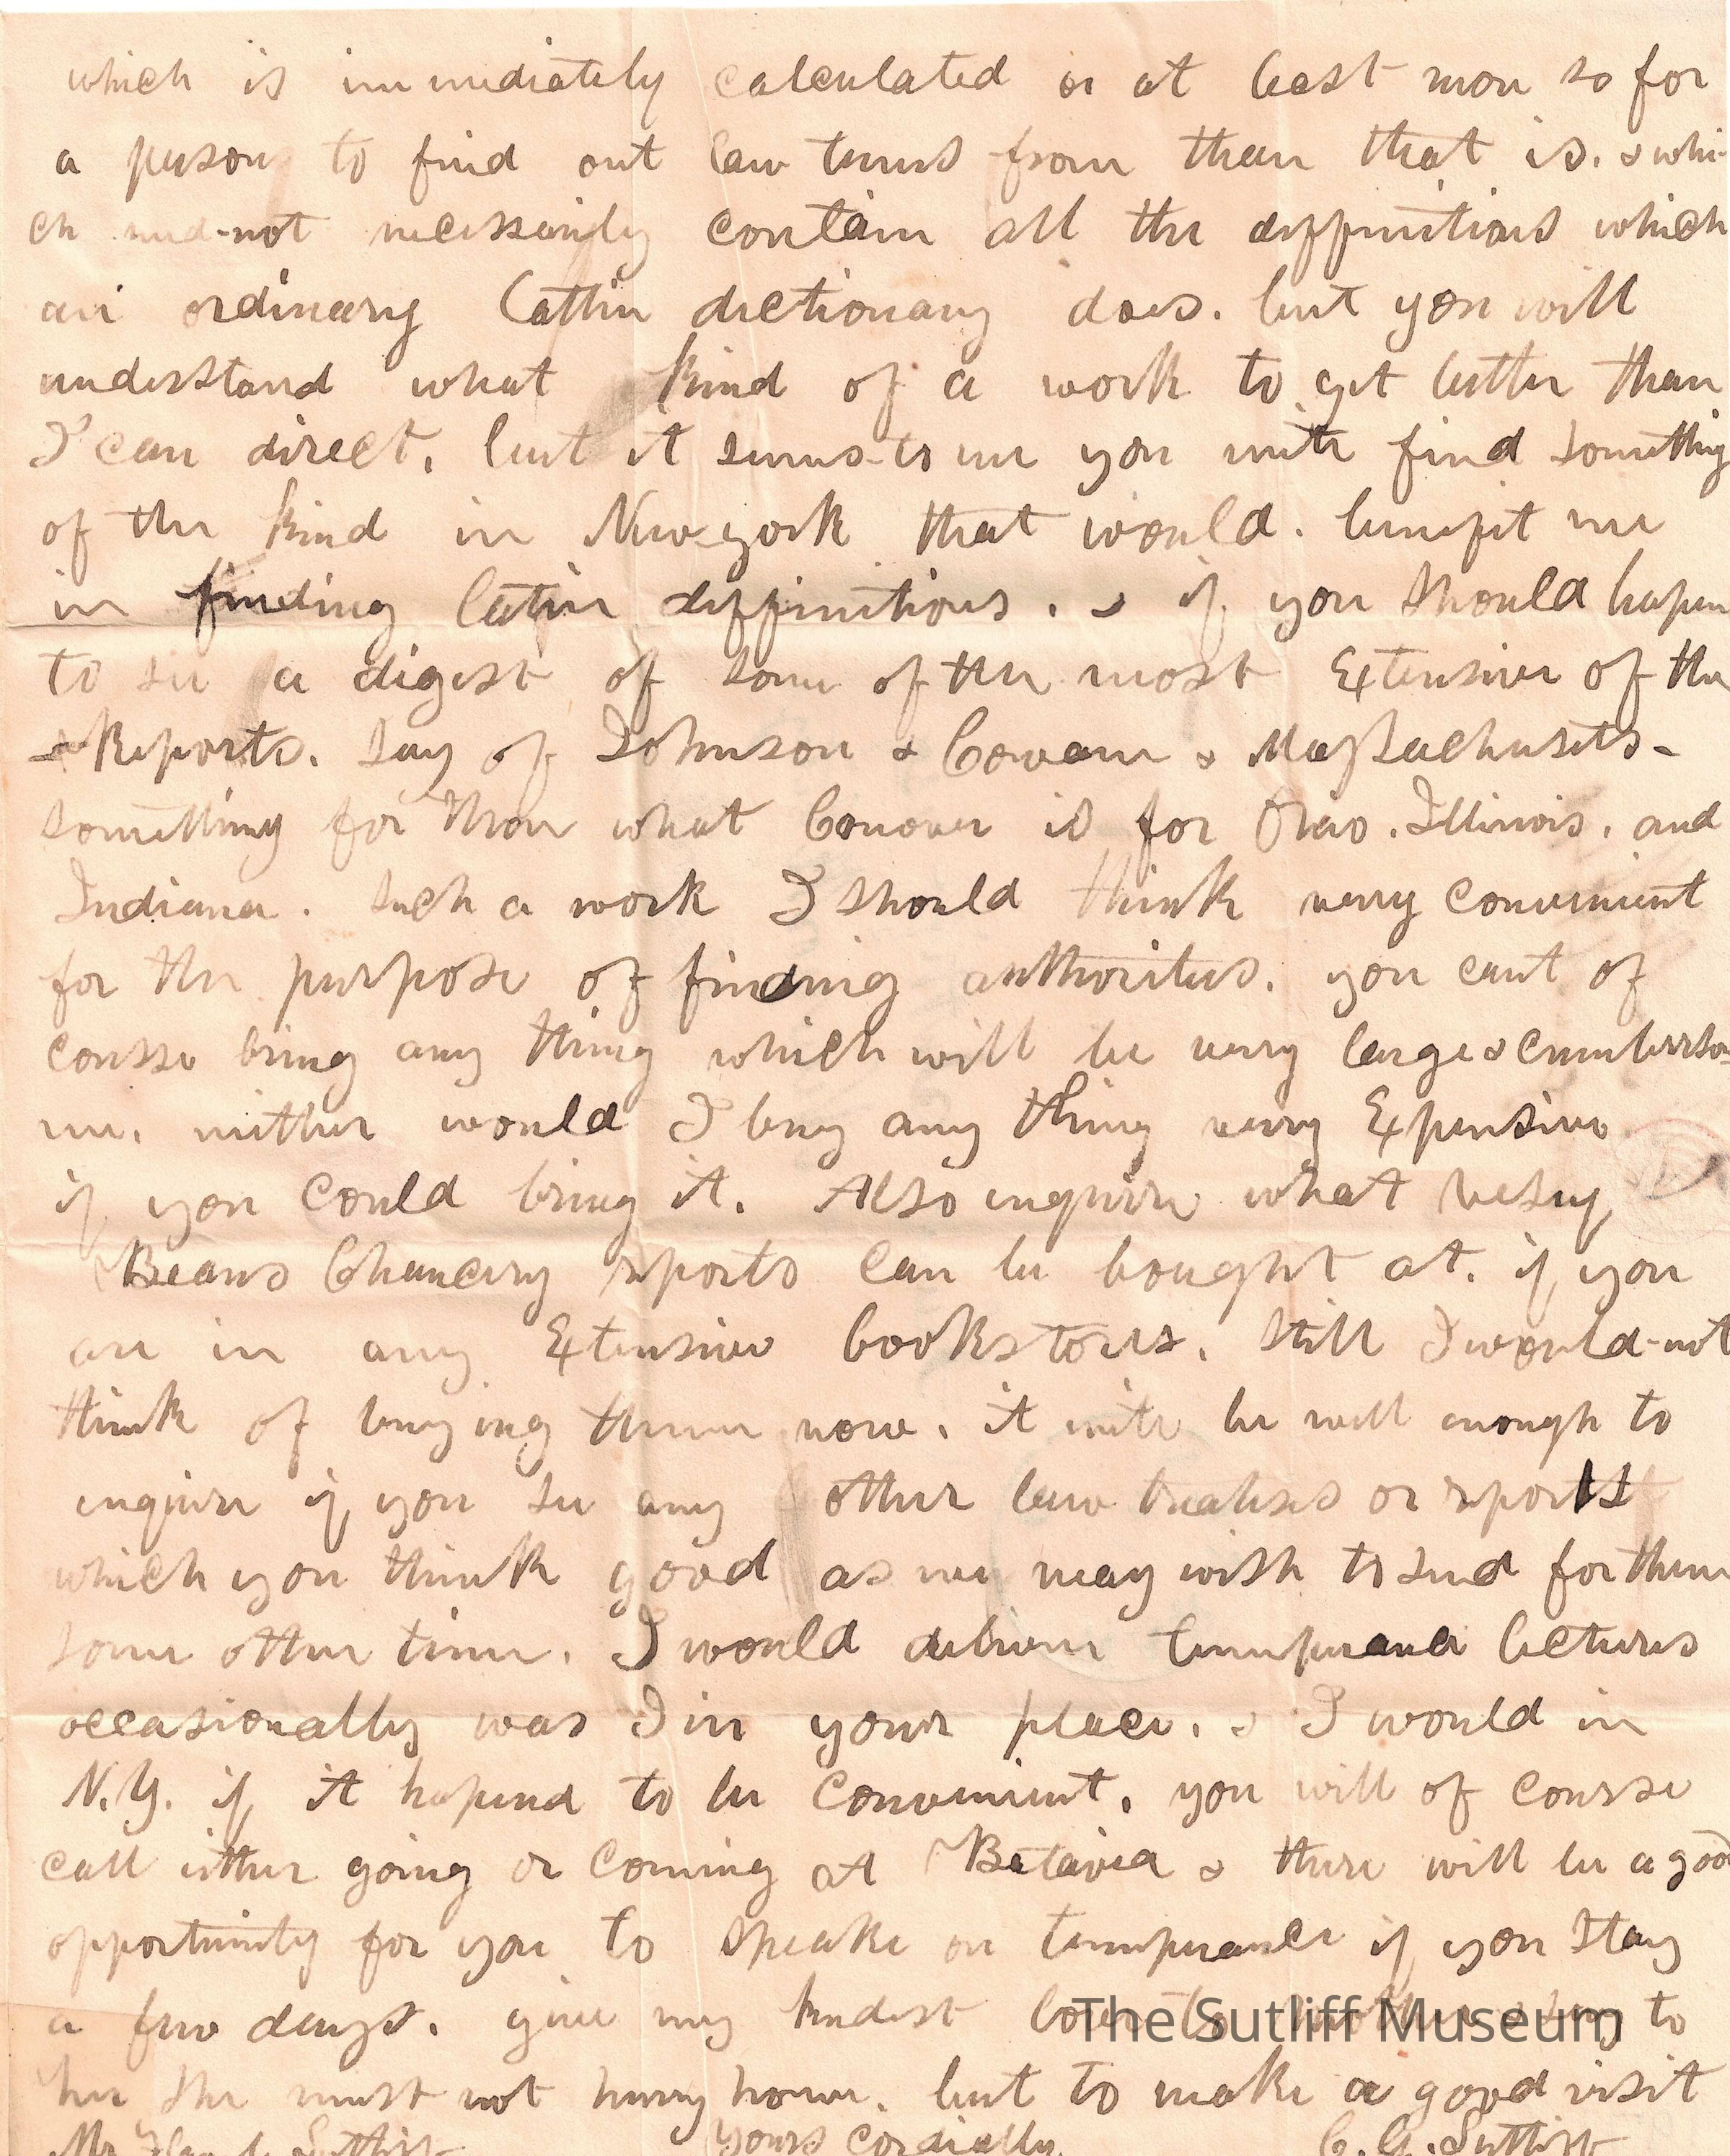 which is immediately calculated or at least more so for
a person to find out law terms from than that is. & whi-
ch need-not necessarily contain all the deffinitions which
an ordinary Lattin dictionary does. but you will
understand what kind of a work to get better than
I can direct, but it seems-to me you mite find something
of the kind in New-york that would. benefit me
in finding latin deffinitions. & if you should hapen
to see a digest of some of the most Extensive of the
Reports. Say of Johnson & Cowean & Massachusets-
something for them what Conover is for Ohio. Illinois. and
Indiana. Such a work I should think verry convenient
for the purpose of finding authorities. you cant of
course bring any thing which will be verry large & cumberso-
me. neither would I buy any thing verry Expensive
if you could bring it. Also enquire what Vesey
Beans Chancery reports can be bought at. if you
are in any Extensive bookstores. Still I would-not
think of buying them now. it mite be well enough to
enquire if you see any other law treatises or reports
which you think good as we may wish to send for them
some other time. I would deliver temperance lectures
occasionally was I in your place. & I would in
N.Y. if it hapend to be convenient. you will of course
call either going or coming at Batavia & there will be a good
opportunity for you to speake on temperance if you stay
a few days. give my kindest love to mother & say to
her she must not hurry home. but to make a good visit
Mr Sutliff yours cordially C. G. Sutliff
The Sutliff Museum